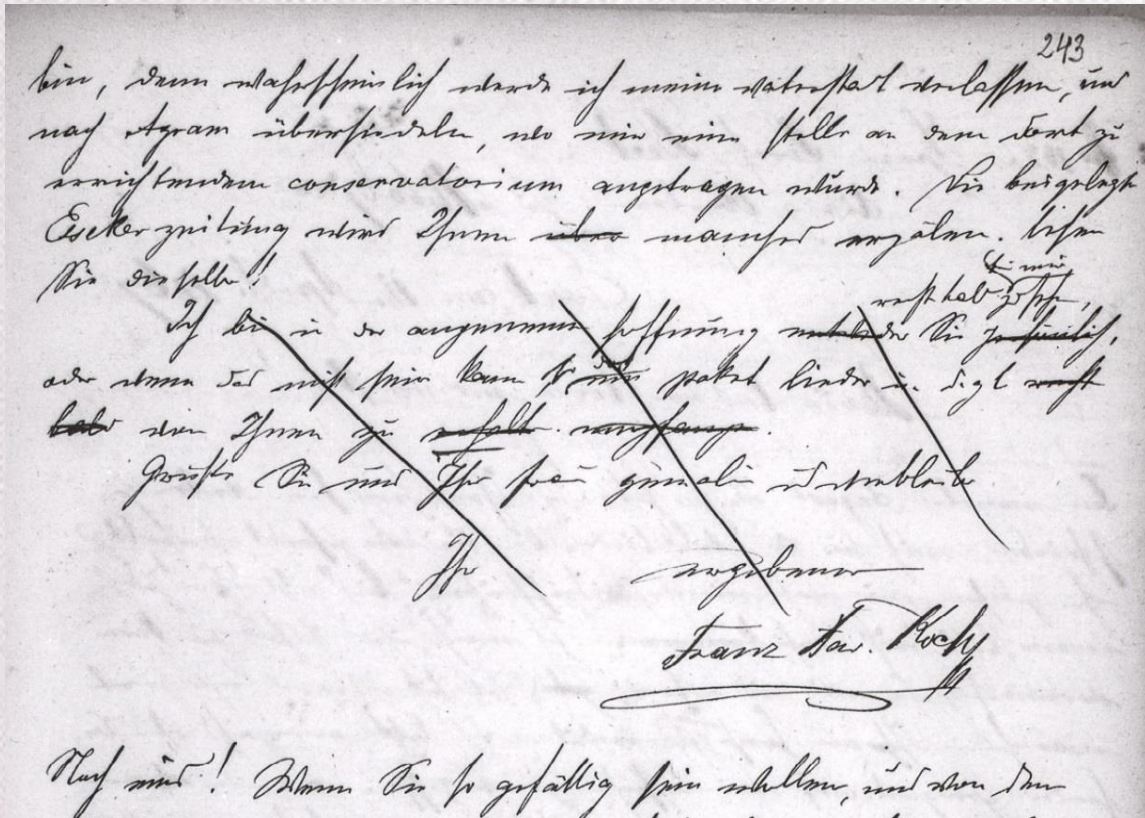 243
bin, denn wahrscheinlich werde ich meine Vaterstadt verlassen, und
nach Agram übersiedeln, wo mir eine Stelle an dem dort zu
errichtendem Conservatorium angetragen wurde. Die beigelegte
Esseker Zeitung wird Ihnen über manches erzälen. Lesen
Sie dieselbe!
bei mir
recht bald zu sehen,
Ich bin in der angenemen Hoffnung entweder Sie persönlich,
oder wenn das nicht sein kann so das Paket Lieder u. dgl recht
bald von Ihnen zu erhalten.
Grüße Sie und Ihre Frau Gemalin und verbleibe
Ihr ergebener
Franz Xav. Koch
Noch eins! Wenn Sie so gefällig sein wollen, und von den